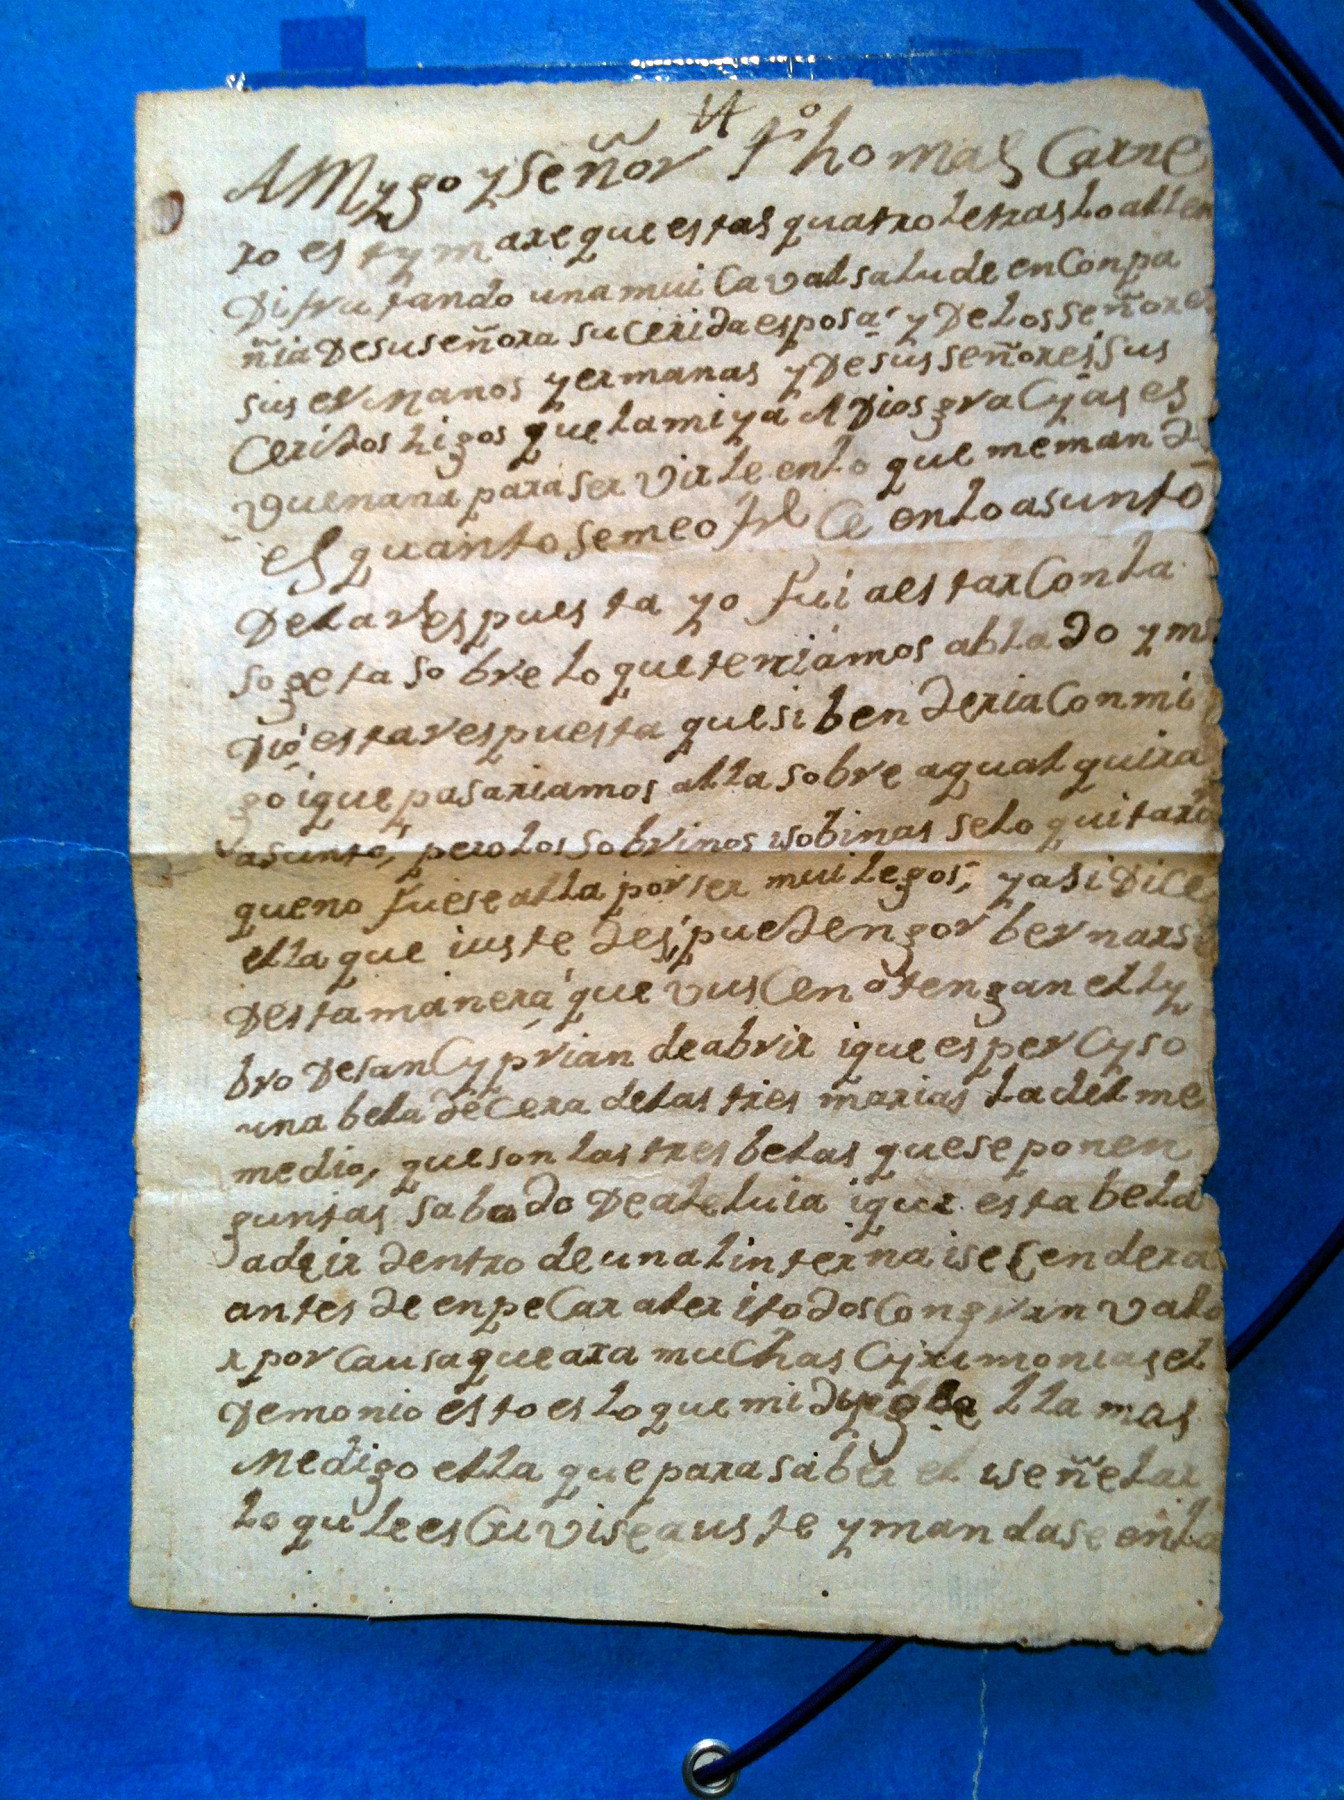 AMygo y Señor Thomas Carne
ro estymare que estas quatro letras lo allen
Disfrutando una mui Caval salude en Conpa
ñia De su señora su cerida esposa y De los señores
sus ermanos y ermanas y De sus señores sus
Ceridos higos que la miya A Dios graCyas es
vuena na para servirle en lo que me mand
es quanto se me ofrece en lo asunto
De la respuesta yo fui a estar Con la
sogeta sobre lo que teniamos ablado y me
Dió esta respuesta que si benderia Conmi
go i que pasariamos alla sobre aqualquira
asunto, pero los sobrinos isobinas selo quitaro
que no fuese alla por ser mui legos, y asi Dice
ella que iuste des pueden gorbernarse
Desta manera que vuscen o tengan el ly
bro De san Cyprian de abrir i que es perCyso
una bela de cera de las tres marias la del me
medio, que son las tres belas que se ponen
guntas sabado De aleluia i que esta bela
a de ir dentro de una linterna i se sendera
antes de enpeCar a ler i todos Con gran valo
r por Causa que ara muChas Cyrimonias el
Demonio esto es lo que mi ella mas
Me digo ella que para saber el señelar
lo qu le esCrivise a uste y mandase en la